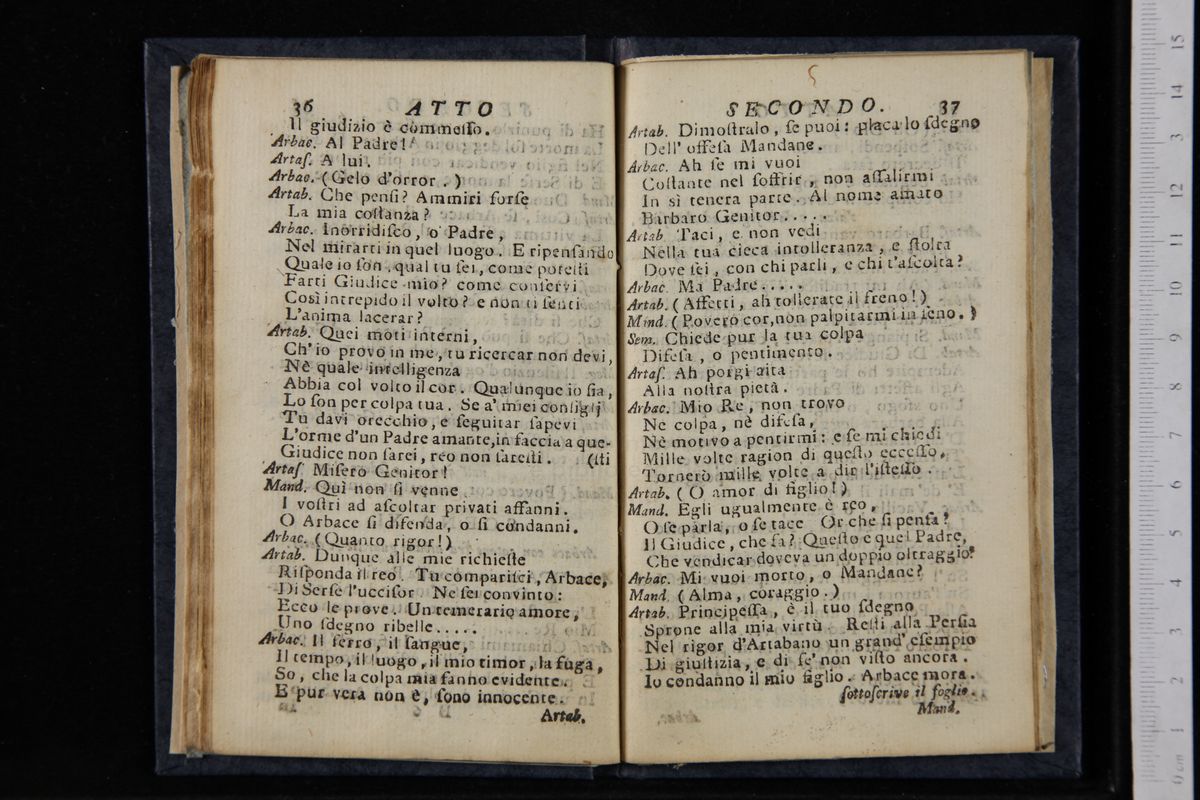 36 ATTO
Il giudizio è commeſſo.
Arbac. Al Padre!
Artaſ. A lui.
Arbac. (Gelo d'orror.)
Artab. Che penſi? Ammiri forſe
La mia coſtanza?
Arbac. Inorridiſco, o Padre,
Nel mirarti in quel luogo. E ripenſando
Quale io ſon, qual tu ſei, come poteſti
Farti Giudice mio? come conſervi
Così intrepido il volto? e non ti ſenti
L'anima lacerar?
Artab. Quei moti interni,
Ch'io provo in me, tu ricercar non devi,
Nè quale intelligenza
Abbia col volto il cor. Qualunque io ſia,
Lo ſon per colpa tua. Se a' miei conſiglj
Tu davi orecchio, e ſeguitar ſapevi
L'orme d'un Padre amante, in faccia a que-
Giudice non ſarei, reo non ſareſti. (ſti
Artaſ. Miſero Genitor!
Mand. Quì non ſi venne
I voſtri ad aſcoltar privati affanni.
O Arbace ſi difenda, o ſi condanni.
Arbac. (Quanto rigor!)
Artab. Dunque alle mie richieſte
Riſponda il reo. Tu compariſci, Arbace,
Di Serſe l'ucciſor Ne ſei convinto:
Ecco le prove. Un temerario amore,
Uno ſdegno ribelle.....
Arbac. Il ferro, il ſangue,
Il tempo, il luogo, il mio timor, la fuga,
So, che la colpa mia fanno evidente.
E pur vera non è, ſono innocente.
Artab.
SECONDO. 37
Artab. Dimoſtralo, ſe puoi: placa lo ſdegno
Dell' offeſa Mandane.
Arbac. Ah ſe mi vuoi
Coſtante nel ſoffrir, non aſſalirmi
In sì tenera parte. Al nome amato
Barbaro Genitor.....
Artab Taci, e non vedi
Nella tua cieca intolleranza, e ſtolta
Dove ſei, con chi parli, e chi t'aſcolta?
Arbac. Ma Padre.....
Artab. (Affetti, ah tollerate il freno!)
Mand. (Povero cor, non palpitarmi in ſeno.)
Sem. Chiede pur la tua colpa
Difeſa, o pentimento.
Artaſ. Ah porgi aita
Alla noſtra pietà.
Arbac. Mio Re, non trovo
Ne colpa, nè difeſa,
Nè motivo a pentirmi: e ſe mi chiedi
Mille volte ragion di queſto ecceſſo,
Tornerò mille volte a dir l'iſteſſo.
Artab. (O amor di figlio!)
Mand. Egli ugualmente è reo,
O ſe parla, o ſe tace Or che ſi penſa?
Il Giudice, che fa? Queſto è quel Padre,
Che vendicar doveva un doppio oltraggio?
Arbac. Mi vuoi morto, o Mandane?
Mand. (Alma, coraggio.)
Artab. Principeſſa, è il tuo ſdegno
Sprone alla mia virtù Reſti alla Perſia
Nel rigor d'Artabano un grand' eſempio
Di giuſtizia, e di fe' non viſto ancora.
Io condanno il mio figlio. Arbace mora.
ſottoſcrive il foglio.
Mand.